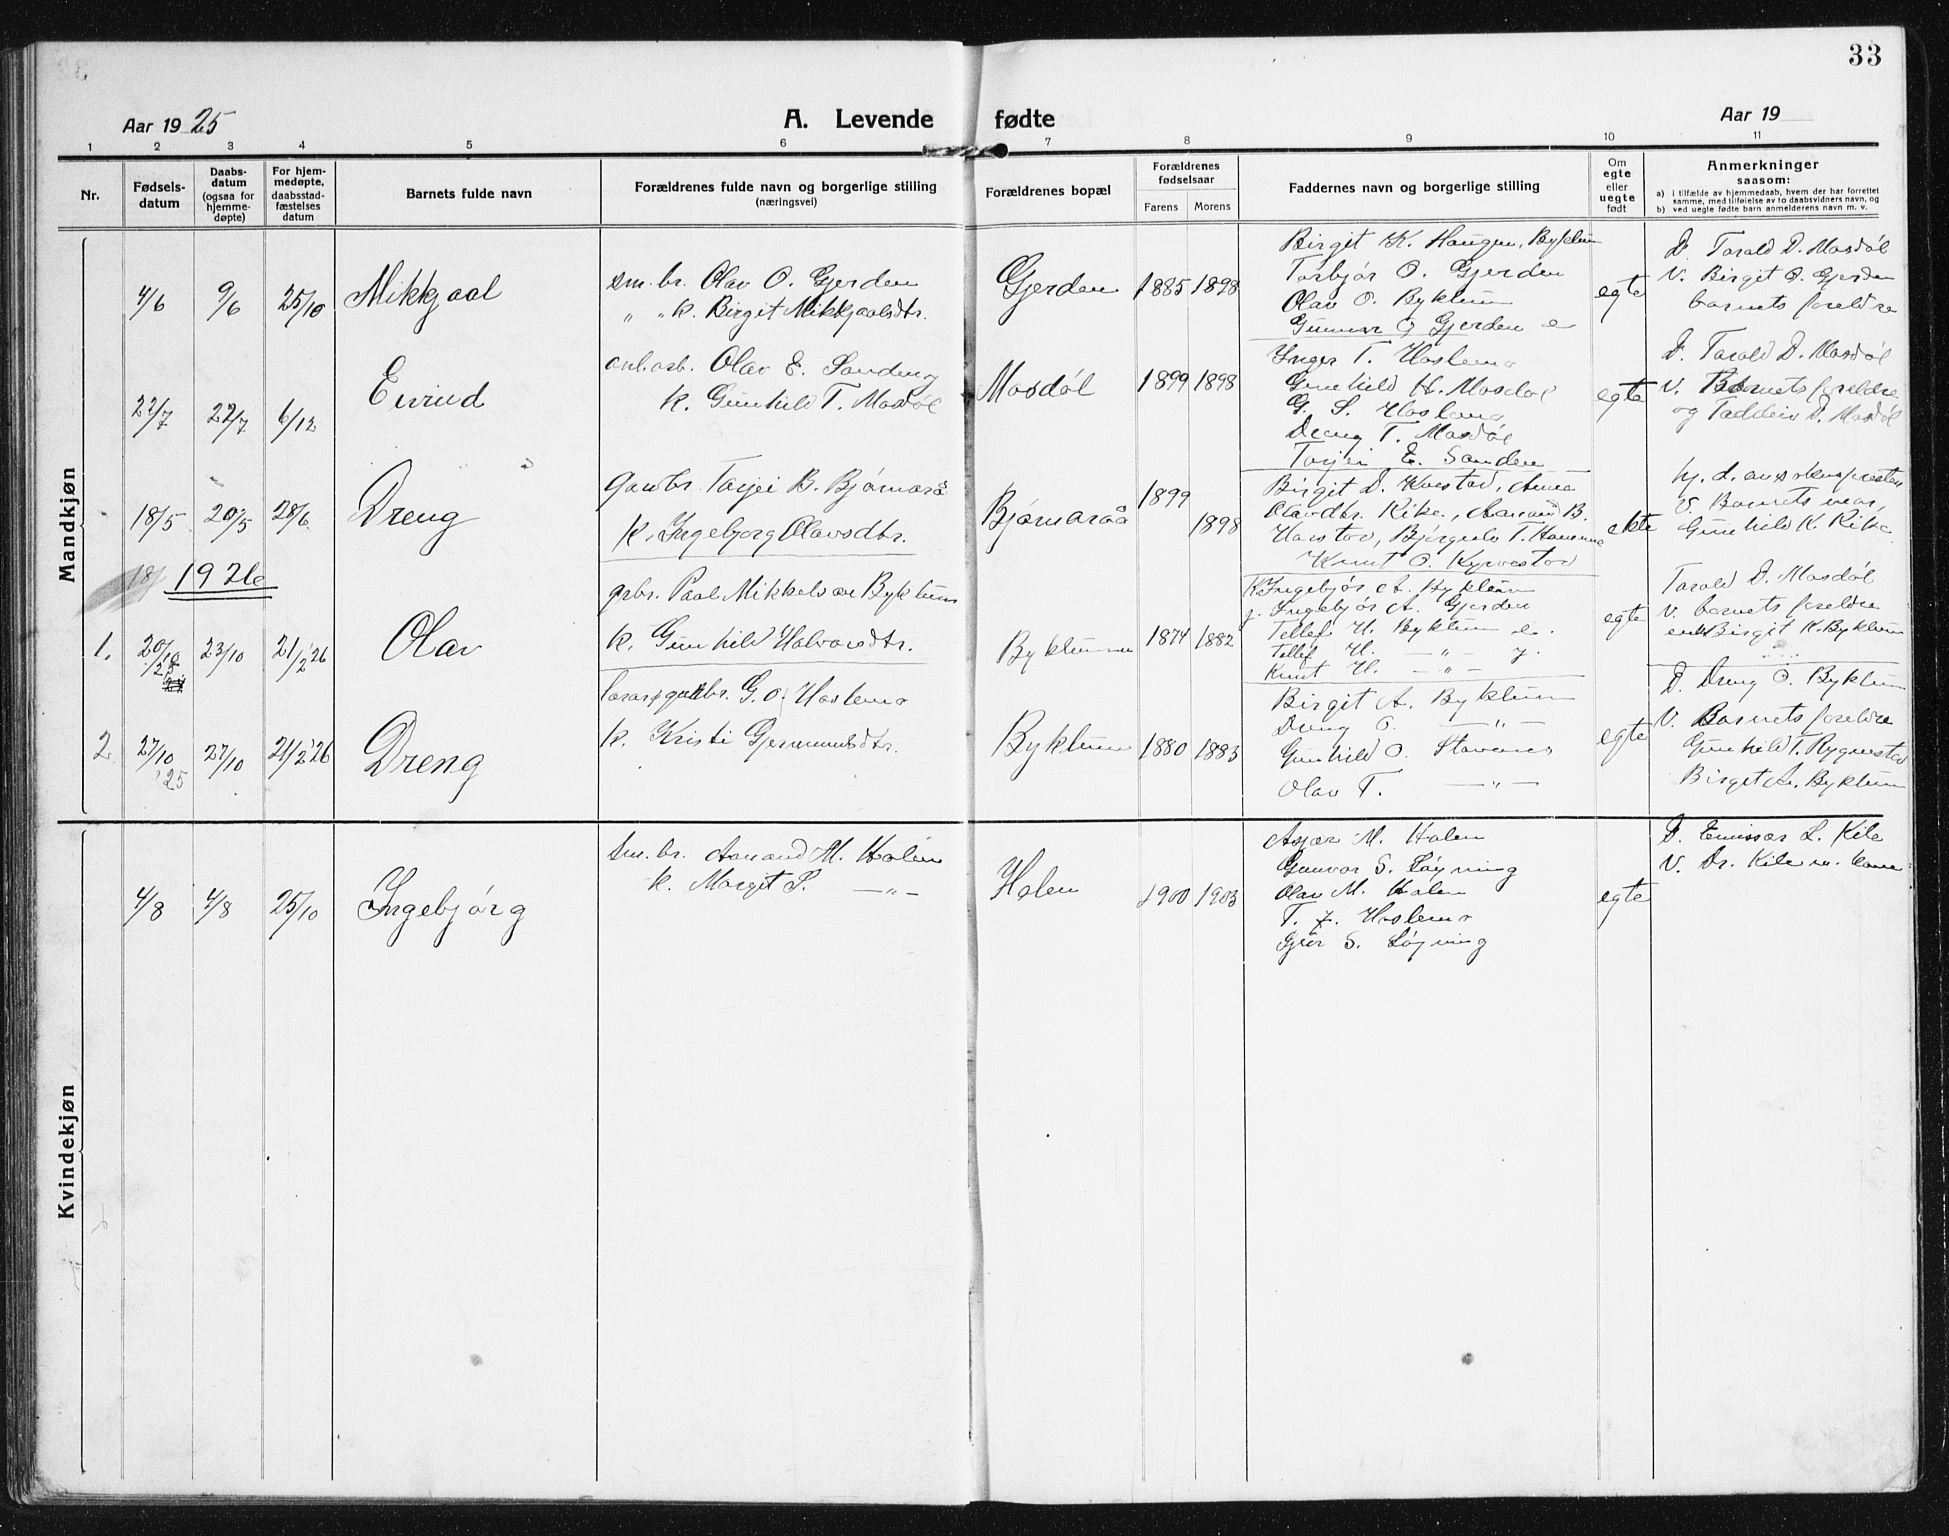 33
Aar 1925
A. Levende fødte
Aar 19
1 2 3 4 5 6 7 8 9 10 11
Nr.
Fødselsdatum
Daabsdatum (ogsaa for hjemmedøpte)
For hjemmedøpte, daabsstadfæstelses datum
Barnets fulde navn
Forældrenes fulde navn og borgerlige stilling (næringsvei)
Forældrenes bopæl
Forældrenes fødselsaar
Farens Morens
Faddernes navn og borgerlige stilling
Om egte eller uegte født
Anmerkninger saasom:
a) i tilfælde av hjemmedaab, hvem der har forrettet samme, med tilføielse av to daabsvidners navn, og
b) ved uegte fødte barn anmelderens navn m. v.
Mandkjøn
4/6 9/6 25/10 Mikkjaal
sm. br. Olav O. Gjerden
" " k. Birgit Mikkjaalsdtr.
Gjerden 1885 1898
Birgit K. Haugen, Byklum
Torbjør O. Gjerden
Olav O. Byklum
Gunnar O Gjerden e
egte
D. Torald D. Mosdøl
V. Birgit O. Gjerden
barnets foreldre
22/7 22/7 6/12 Eivind
anl.arb. Olav E. Sanden
k. Gunhild T. Mosdøl
Mosdøl 1899 1898
Inger T. Hoslemo
Gunhild H. Mosdøl
G. S. Hoslemo
Dreng T. Mosdøl
Torjei E. Sanden
egte
D. Torald D. Mosdøl
V. Barnets foreldre
og Taddeiv D. Mosdøl
18/5 20/5 28/6 Dreng
garbr. Torjei B. Bjørnaraa
k. Ingeborg Olavsdtr.
Bjørnaraa 1899 1898
Birgit D. Hoestad, Anne
Olavdtr. Rike, Aanund B.
Harstov, Bjørgulv T.
Knut O. Kyrvestad
ekte
hj. d. av soknepresten
V. Barnets mor,
Gunhild K. Rike
18/ 1926
1. 20/10 25 23/10 21/2 '26 Olav
grbr. Paal Mikkelson Byklum
k. Gunhild Halvorsdtr.
Byklum 1874 1882
K. Ingebjør A. Byklum
g. Ingebjør A. Gjerden
Tellef H. Byklum e.
Tellef H. — " — y.
Knut H. — " —
egte
Torald D. Mosdøl
V. barnets foreldre
enk Birgit K. Byklum
2. 27/10 '25 27/10 21/2 '26 Dreng
garbr. G. O. Hoslemo
k. Kristi Gjermundsdtr.
Byklum 1880 1883
Birgit A. Byklum
Dreng O. — " —
Gunhild O. Stavenes
Olav T. — " —
egte
D. Dreng O. Byklum
V. Barnets foreldre
Gunhild T. Rygnestad
Birgit A. Byklum
Kvindekjøn
4/8 4/8 25/10 Ingebjørg
Sm. br. Aanund M. Holen
k. Margit P. — " —
Holen 1900 1903
Asjær M. Holen
Gunvor S. Løyning
Olav M. Holen
T. J. Hoslemo
Gjur S. Løyning
egte
D. Emissær L. Kile
V. Dr. Kile m. kone